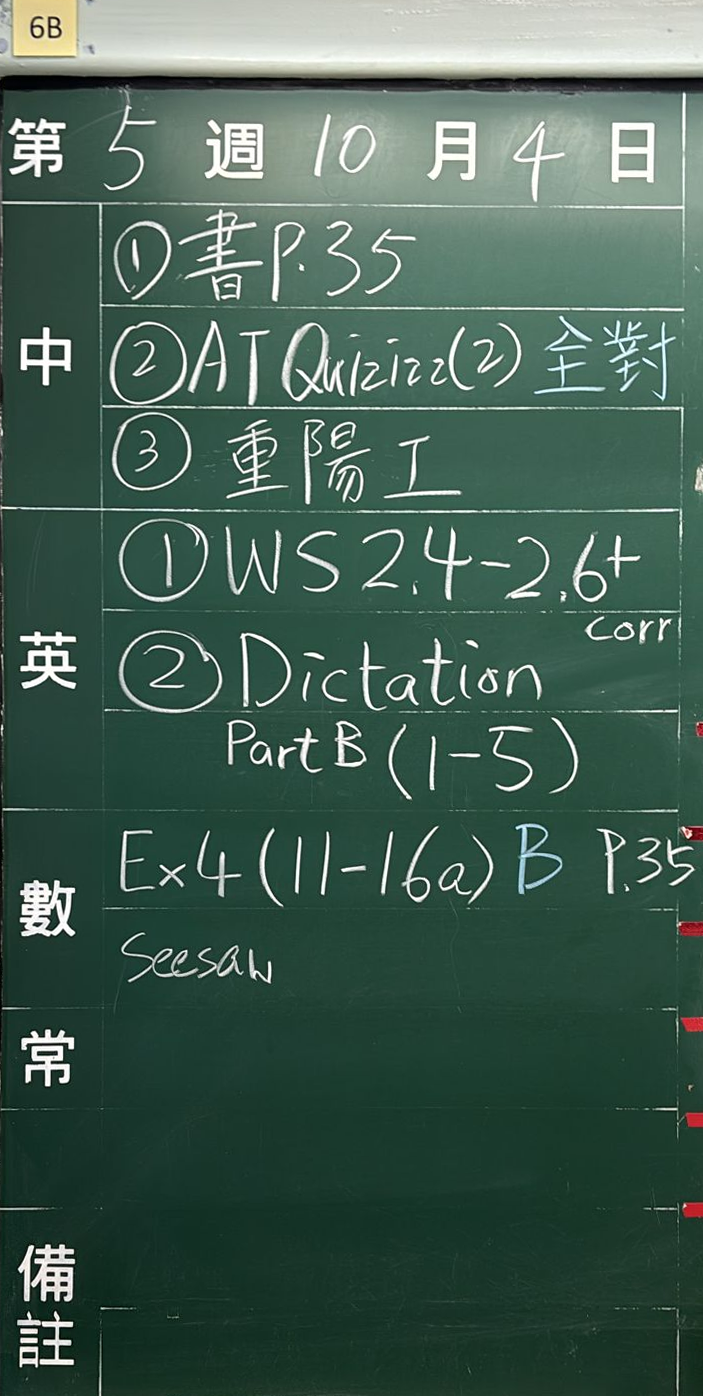 6B
第5週10月4日
中
①書P.35
②AT Quizizz(2) 全對
③重陽工
英
①WS 2.4-2.6+
corr
②Dictation
Part B (1-5)
數
Ex4(11-16a) B P.35
Seesaw
常
備註